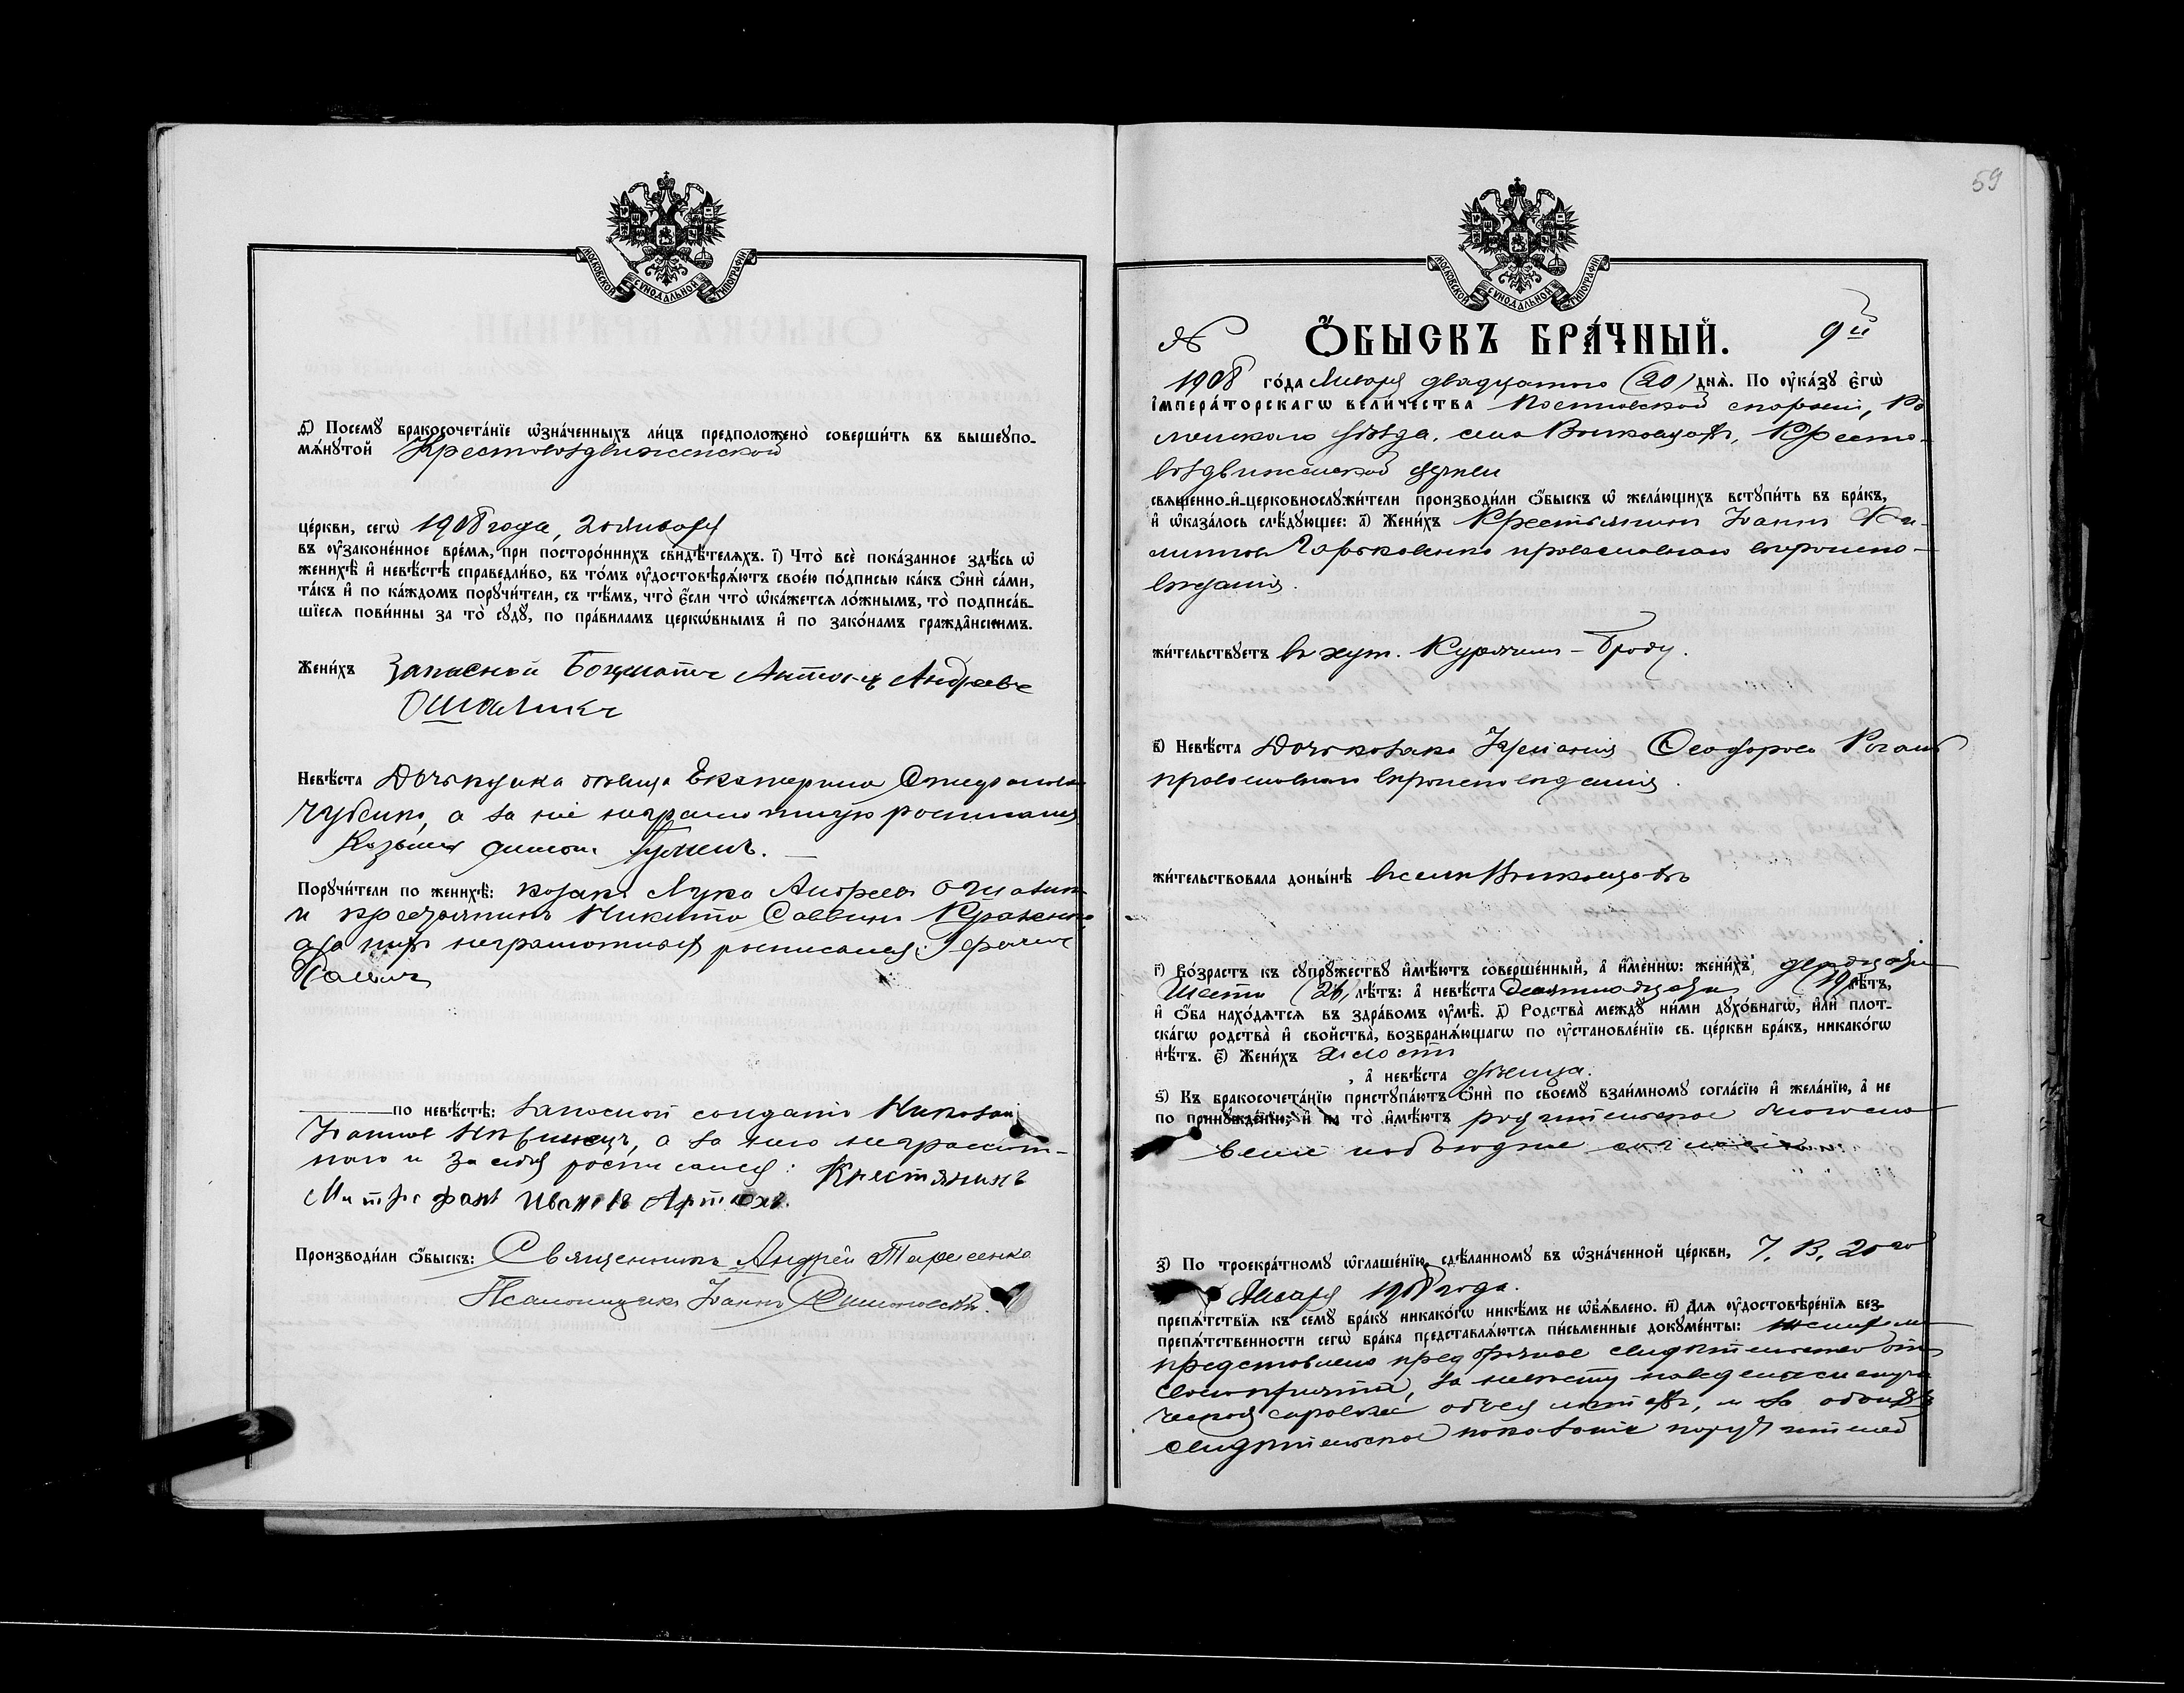 МОСКОВСКОЙ СѴНОДАЛЬНОЙ ТИПОГРАФІИ
Посему бракосочетаніе ѡзначенныхъ лицъ предположено совершить въ вышеупо-
мѧнутой Крестовоздвиженской
церкви, сегѡ 1908 года, 20 Января
въ оузаконенное времѧ, при постороннихъ свидѣтелѧхъ. і) Что все показанное здѣсь ѡ
женихѣ и невѣстѣ справедливо, въ томъ оудостовѣрѧютъ своею подписью какъ ѻни сами,
такъ и по каждомъ поручители, съ тѣмъ, что если что ѡкажется ложнымъ, то подписав-
шіеся повинны за то суду, по правиламъ церкѡвнымъ и по законамъ гражданскимъ.
Женихъ Запасной Антонъ Андреевъ
Невѣста Дочь козака девица Екатерина Спиридонова
а за нее неграмотную росписался
Козьма
Поручители по женихѣ: козакъ Лука Андреевъ
и крестьянинъ Никита Саввинъ
а за нихъ неграмотныхъ росписался:
по невѣстѣ: запасной солдатъ
а за него неграмот-
наго и за себя росписался: Крестянинъ
Митрофанъ Ивановъ Артюхъ.
Производили ѻбыскъ: Священникъ Андрей Тарасенко
Псаломщикъ Іоаннъ
59
МОСКОВСКОЙ СѴНОДАЛЬНОЙ ТИПОГРАФІИ
№ ѺБЫСКЪ БРАЧНЫЙ. 9й
1908 года Января двадцатого (20) днѧ. По оуказу егѡ
императорскагѡ величества Полтавской епархіи, Ро
менскаго уѣзда, села Волковцовъ, Кресто-
воздвиженской церкви
свѧщенно-и-церковнослужители производили ѻбыскъ ѡ желающихъ вступить въ бракъ,
и ѡказалось слѣдующее: а) Женихъ Крестьянинъ Іоаннъ
православнаго вѣроиспо-
вѣданія.
жительствуетъ въ хут. Курячемъ-Броду.
в) Невѣста Дочь козака Ѳеодорова
православнаго вѣроисповѣданія.
жительствовала донынѣ въ селѣ Волковцахъ
г) Возрастъ къ супружеству имѣютъ совершенный, а именнѡ: женихъ двадцати
шести (26) лѣтъ: а невѣста девятнадцати (19) лѣтъ,
и ѻба находѧтся въ здравомъ оумѣ. д) Родства между ними духовнагѡ, или плот-
скагѡ родства и свойства, возбранѧющагѡ по оустановленію св. церкви бракъ, никакогѡ
нѣтъ. е) Женихъ холостъ
, а невѣста дѣвица.
ѕ) Къ бракосочетанію приступаютъ ѻни по своему взаимному согласію и желанію, а не
по принужденію; и на то имѣютъ родительское благосло-
веніе
з) По троекратному ѡглашенію, сдѣланному въ ѡзначенной церкви, 7, 13, 20го
Января 1908 года.
препѧтствіѧ къ сему браку никакогѡ никѣмъ не ѡбъѧвлено. и) Длѧ оудостовѣреніѧ без-
препѧтственности сегѡ брака представлѧются письменные документы: женихомъ
представлено предбрачное свидѣтельство отъ
своего причта, за невѣсту наведена
справка объ ея лѣтахъ, и за обоихъ
свидѣтельское показаніе поручителей